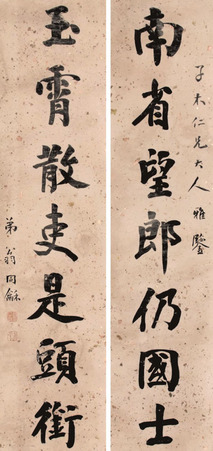 子禾仁兄大人雅鑒
南省望郎仍國士
玉霄散吏是頭銜
弟翁同龢